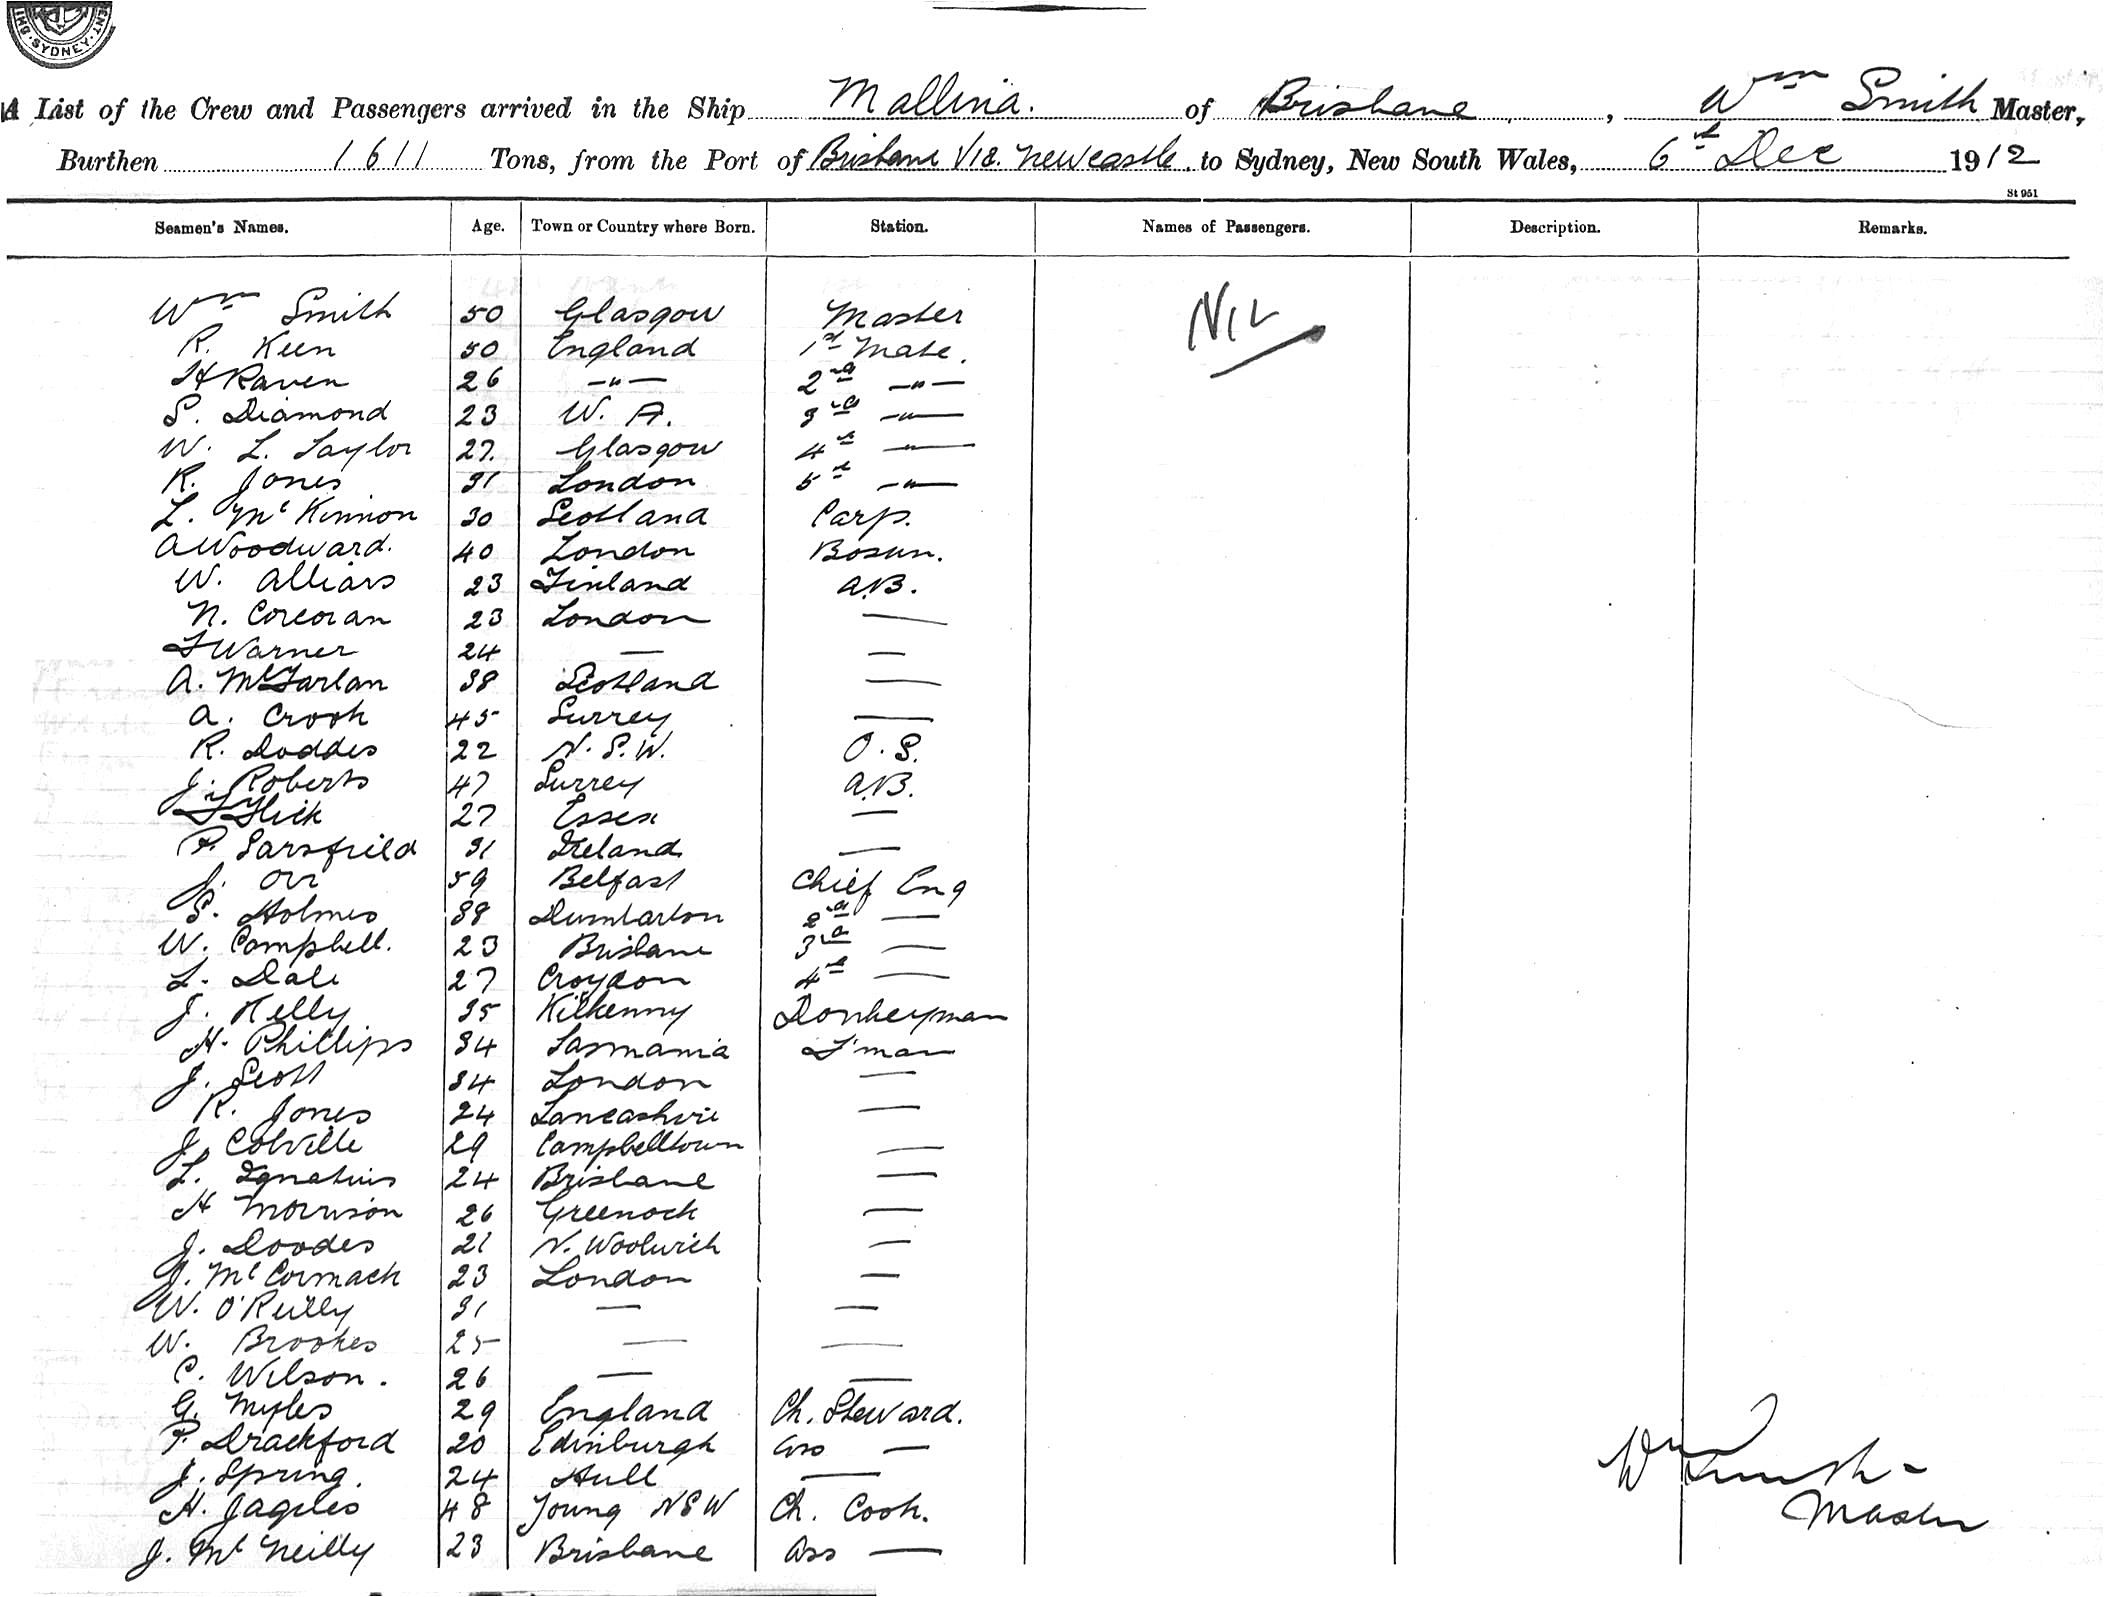 SYDNEY
A List of the Crew and Passengers arrived in the Ship Mallina. of Brisbane, Wm Smith Master,
Burthen 1611 Tons, from the Port of Brisbane Via. Newcastle. to Sydney, New South Wales, 6th Dec 1912
St 951
Seamen's Names. Age. Town or Country where Born. Station. Names of Passengers. Description. Remarks.
Wm Smith 50 Glasgow Master NIL
R. Keen 50 England 1st Mate.
H Raven 26 —"— 2nd —"—
S. Diamond 23 W. A. 3rd —"—
W. L. Taylor 27. Glasgow 4th —"—
R. Jones 31 London 5th —"—
L. McKinnon 30 Scotland Carp.
A Woodward. 40 London Bosun.
W. Alliars 23 Finland A.B.
N. Corcoran 23 London —
F Warner 24 — —
A. McFarlan 38 Scotland —
A. Crook 45 Surrey —
R. Doddes 22 N. S. W. O. S.
J. Roberts 47 Surrey A.B.
F Flick 27 Essex —
P. Sarsfield 31 Ireland —
J. Orr 59 Belfast Chief Eng
S. Holmes 38 Dumbarton 2nd —
W. Campbell. 23 Brisbane 3rd —
L. Dale 27 Croydon 4th —
J. Kelly 35 Kilkenny Donkeyman
H. Phillips 34 Tasmania F'man
J. Scott 34 London —
R. Jones 24 Lancashire —
J. Colville 29 Campbelltown —
L. Ignatius 24 Brisbane —
H Morrison 26 Greenock —
J. Doodes 21 N. Woolwich —
J. McCormack 23 London —
W. O'Reilly 31 — —
W. Brookes 25 — —
C. Wilson. 26 — —
G. Myles 29 England Ch. Steward.
P. Drackford 20 Edinburgh Ass —
J. Spring. 24 Hull —
H. Jaques 48 Young NSW Ch. Cook.
J. McNeilly 23 Brisbane Ass —
Wm Smith -
Master